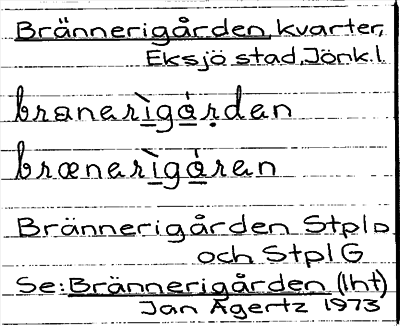 Brännerigården, kvarter,
Eksjö stad, Jönk.l.
branerìgắṛden
brænerìgắren
Brännerigården StplD
och StplG
Se: Brännerigården (lht)
Jan Agertz 1973